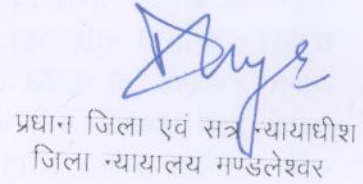 प्रधान जिला एवं सत्र न्यायाधीश
जिला न्यायालय मण्डलेश्वर